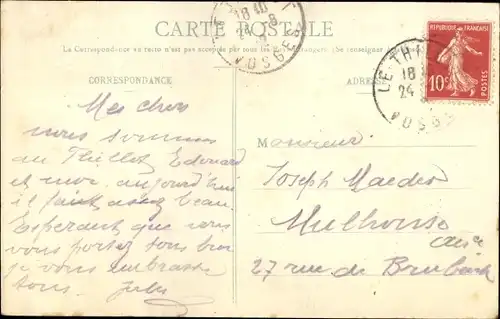 CARTE POSTALE
La Correspondance au recto n'est pas acceptée par tous les pays étrangers (Se renseigner
CORRESPONDANCE
ADRESSE
RÉPUBLIQUE FRANÇAISE
10c
POSTES
18 10
24 - 8
VOSGES
LE THI
18
24
VOSGES
Mes chers
nous sommes
au Thillot Edouard
et moi aujourd'hui
il fait assez beau.
Esperant que vous
vous portez tous bien
je vous embrasse
tous. Jules
Monsieur
Joseph Maeder
Mulhouse
27 rue de